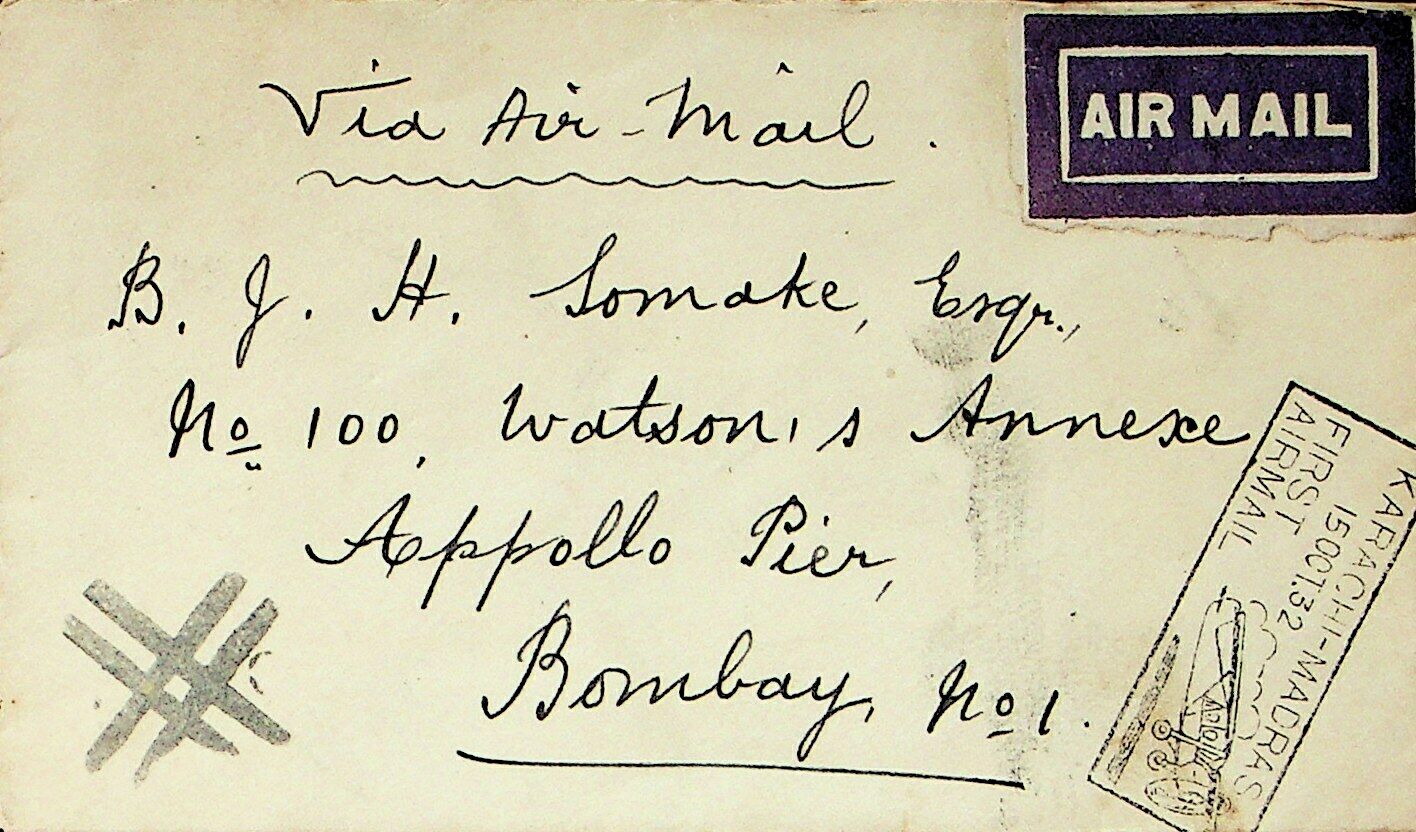 Via Air-Mail.
AIR MAIL
B. J. H. Somake, Esqr.,
No 100, Watson's Annexe
Appollo Pier,
Bombay, No 1.
KARACHI-MADRAS
15OCT.32
FIRST
AIRMAIL